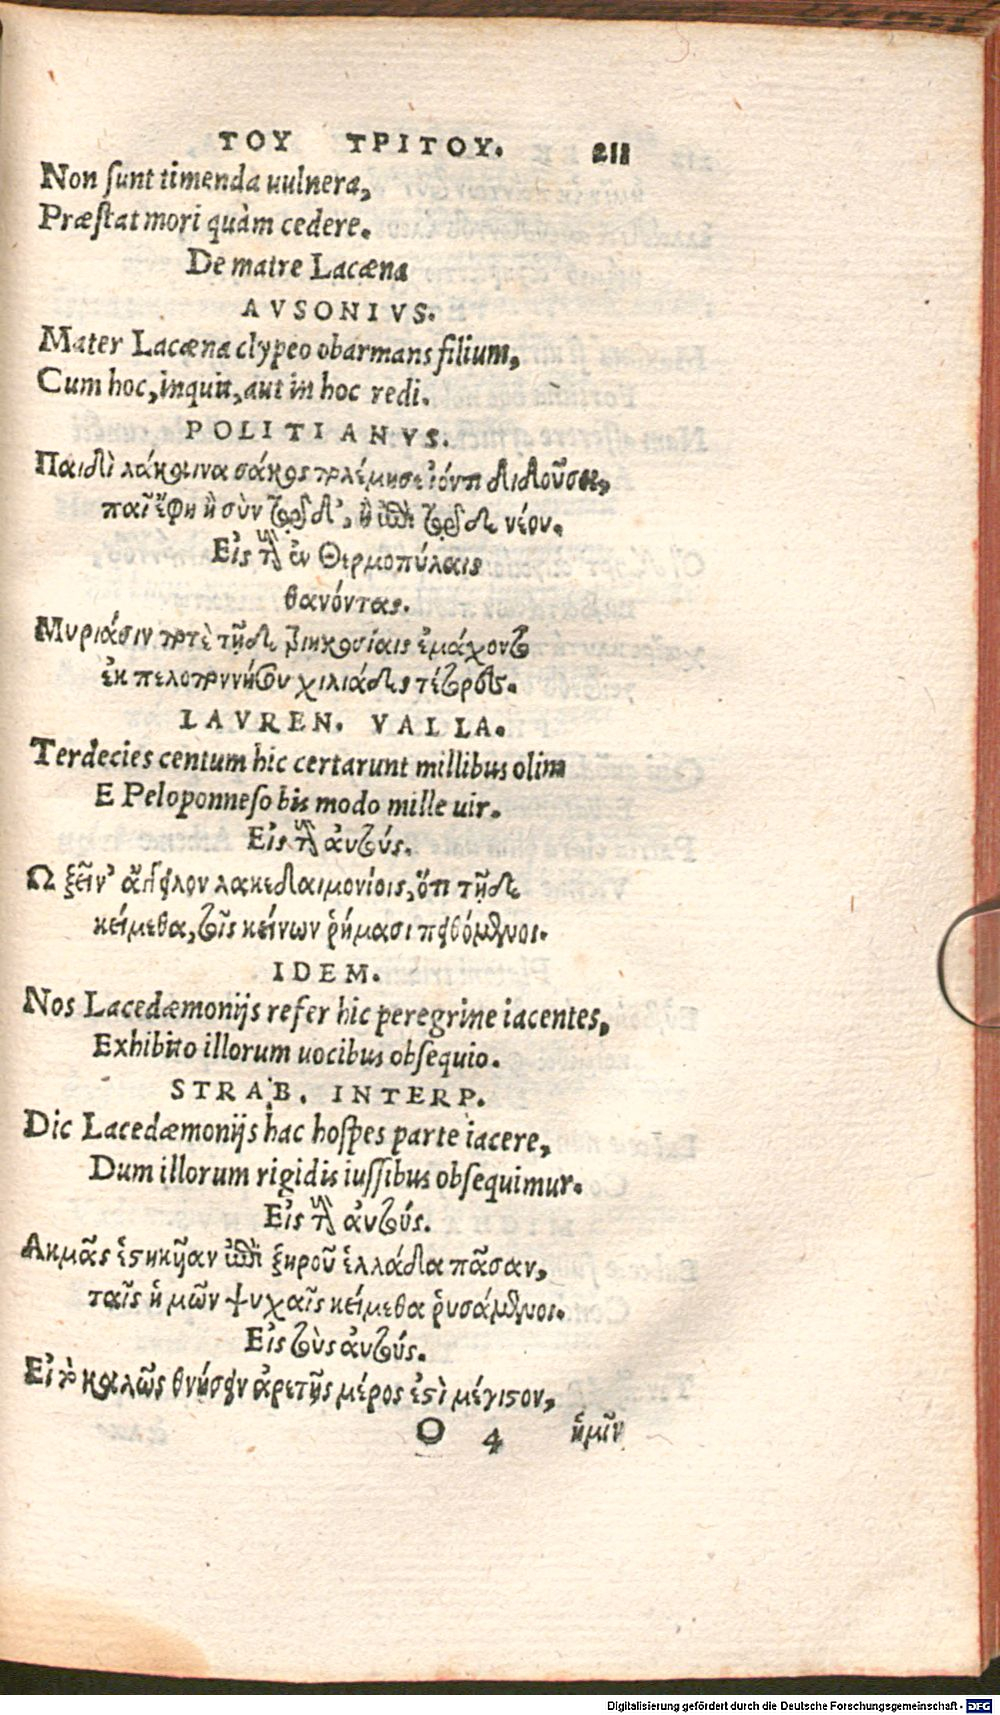 ΤΟΥ ΤΡΙΤΟΥ. 211
Non ſunt timenda uulnera,
Præſtat mori quàm cedere.
De matre Lacæna
AVSONIVS.
Mater Lacæna clypeo obarmans filium,
Cum hoc, inquit, aut in hoc redi.
POLITIANVS.
Παιδὶ λάκαινα σάκος πολέμησε ἰόντι διδοῦσα,
παῖ ἔφη ἢ σὺν τᾷδ', ἢ ἐπὶ τᾷδε νέου.
Εἰς τοὺς ἐν Θερμοπύλαις
θανόντας.
Μυριάσιν ποτὲ τῇδε τριηκοσίαις ἐμάχοντο
ἐκ πελοποννήσου χιλιάδες τέτορες.
LAVREN. VALLA.
Terdecies centum hic certarunt millibus olim
E Peloponneſo bis modo mille uir.
Εἰς τοὺς αὐτούς.
Ω ξεῖν' ἄγγειλον λακεδαιμονίοις, ὅτι τῇδε
κείμεθα, τοῖς κείνων ῥήμασι πειθόμενοι.
IDEM.
Nos Lacedæmonijs refer hic peregrine iacentes,
Exhibito illorum uocibus obſequio.
STRAB. INTERP.
Dic Lacedæmonijs hac hoſpes parte iacere,
Dum illorum rigidis iuſſibus obſequimur.
Εἰς τοὺς αὐτούς.
Ακμᾶς ἑστηκῆαν ἐπὶ ξηροῦ ἑλλάδα πᾶσαν,
ταῖς ἡμῶν ψυχαῖς κείμεθα ῥυσάμενοι.
Εἰς τοὺς αὐτούς.
Εἰ τὸ καλῶς θνήσκειν ἀρετῆς μέρος ἐστὶ μέγιστον,
O 4 ἡμῖν
Digitalisierung gefördert durch die Deutsche Forschungsgemeinschaft - DFG